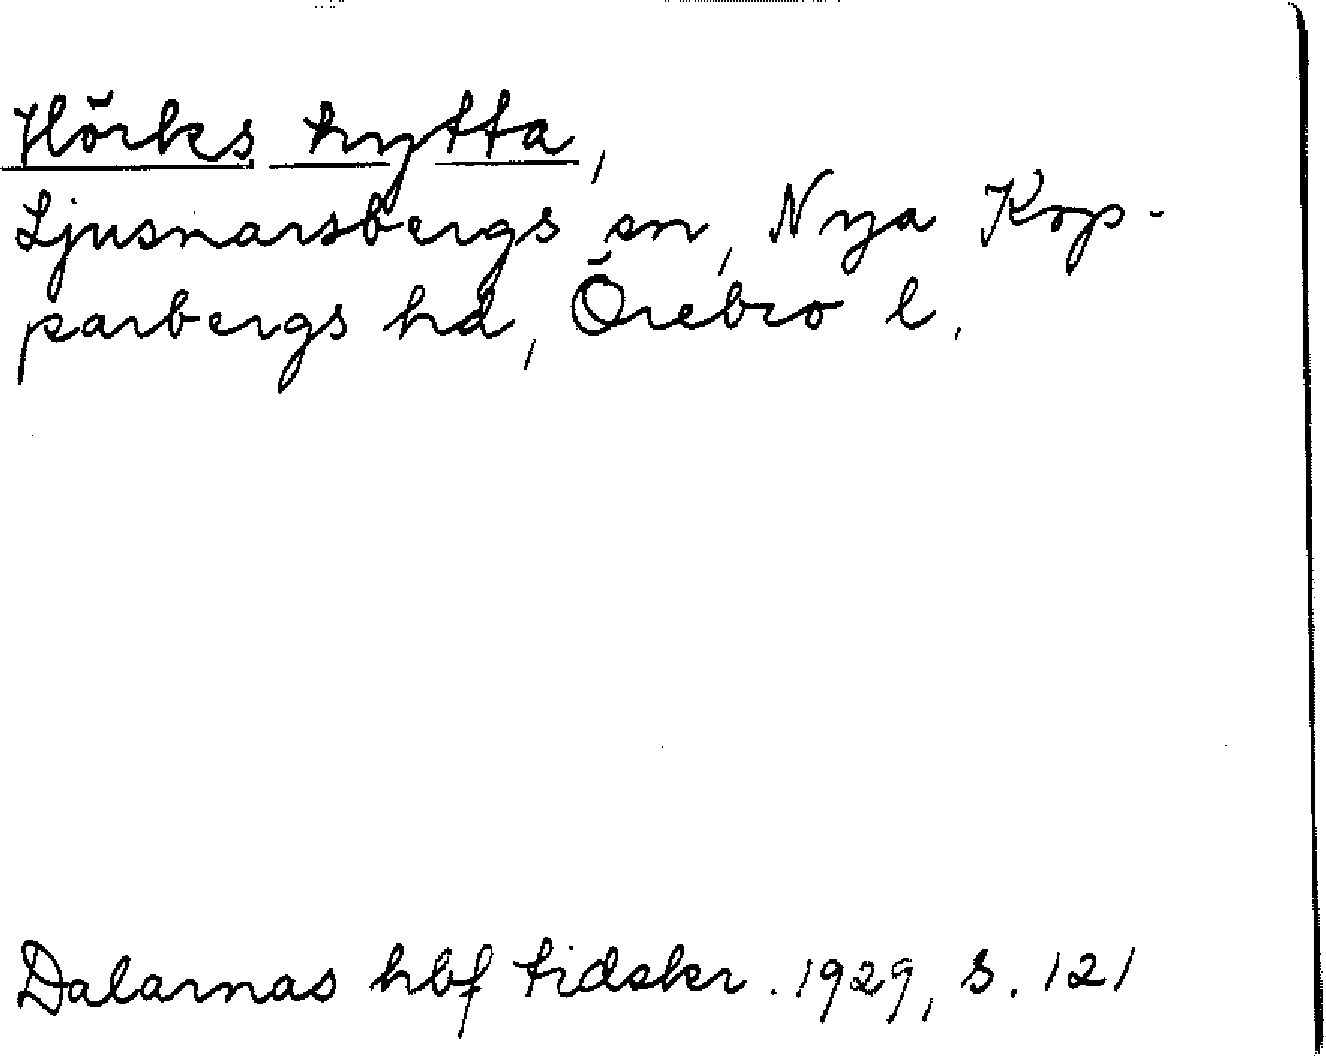 Hörks hytta,
Ljusnarsbergs sn, Nya Kop-
parbergs hd, Örebro l.
Dalarnas hbf tidskr. 1929, s. 121